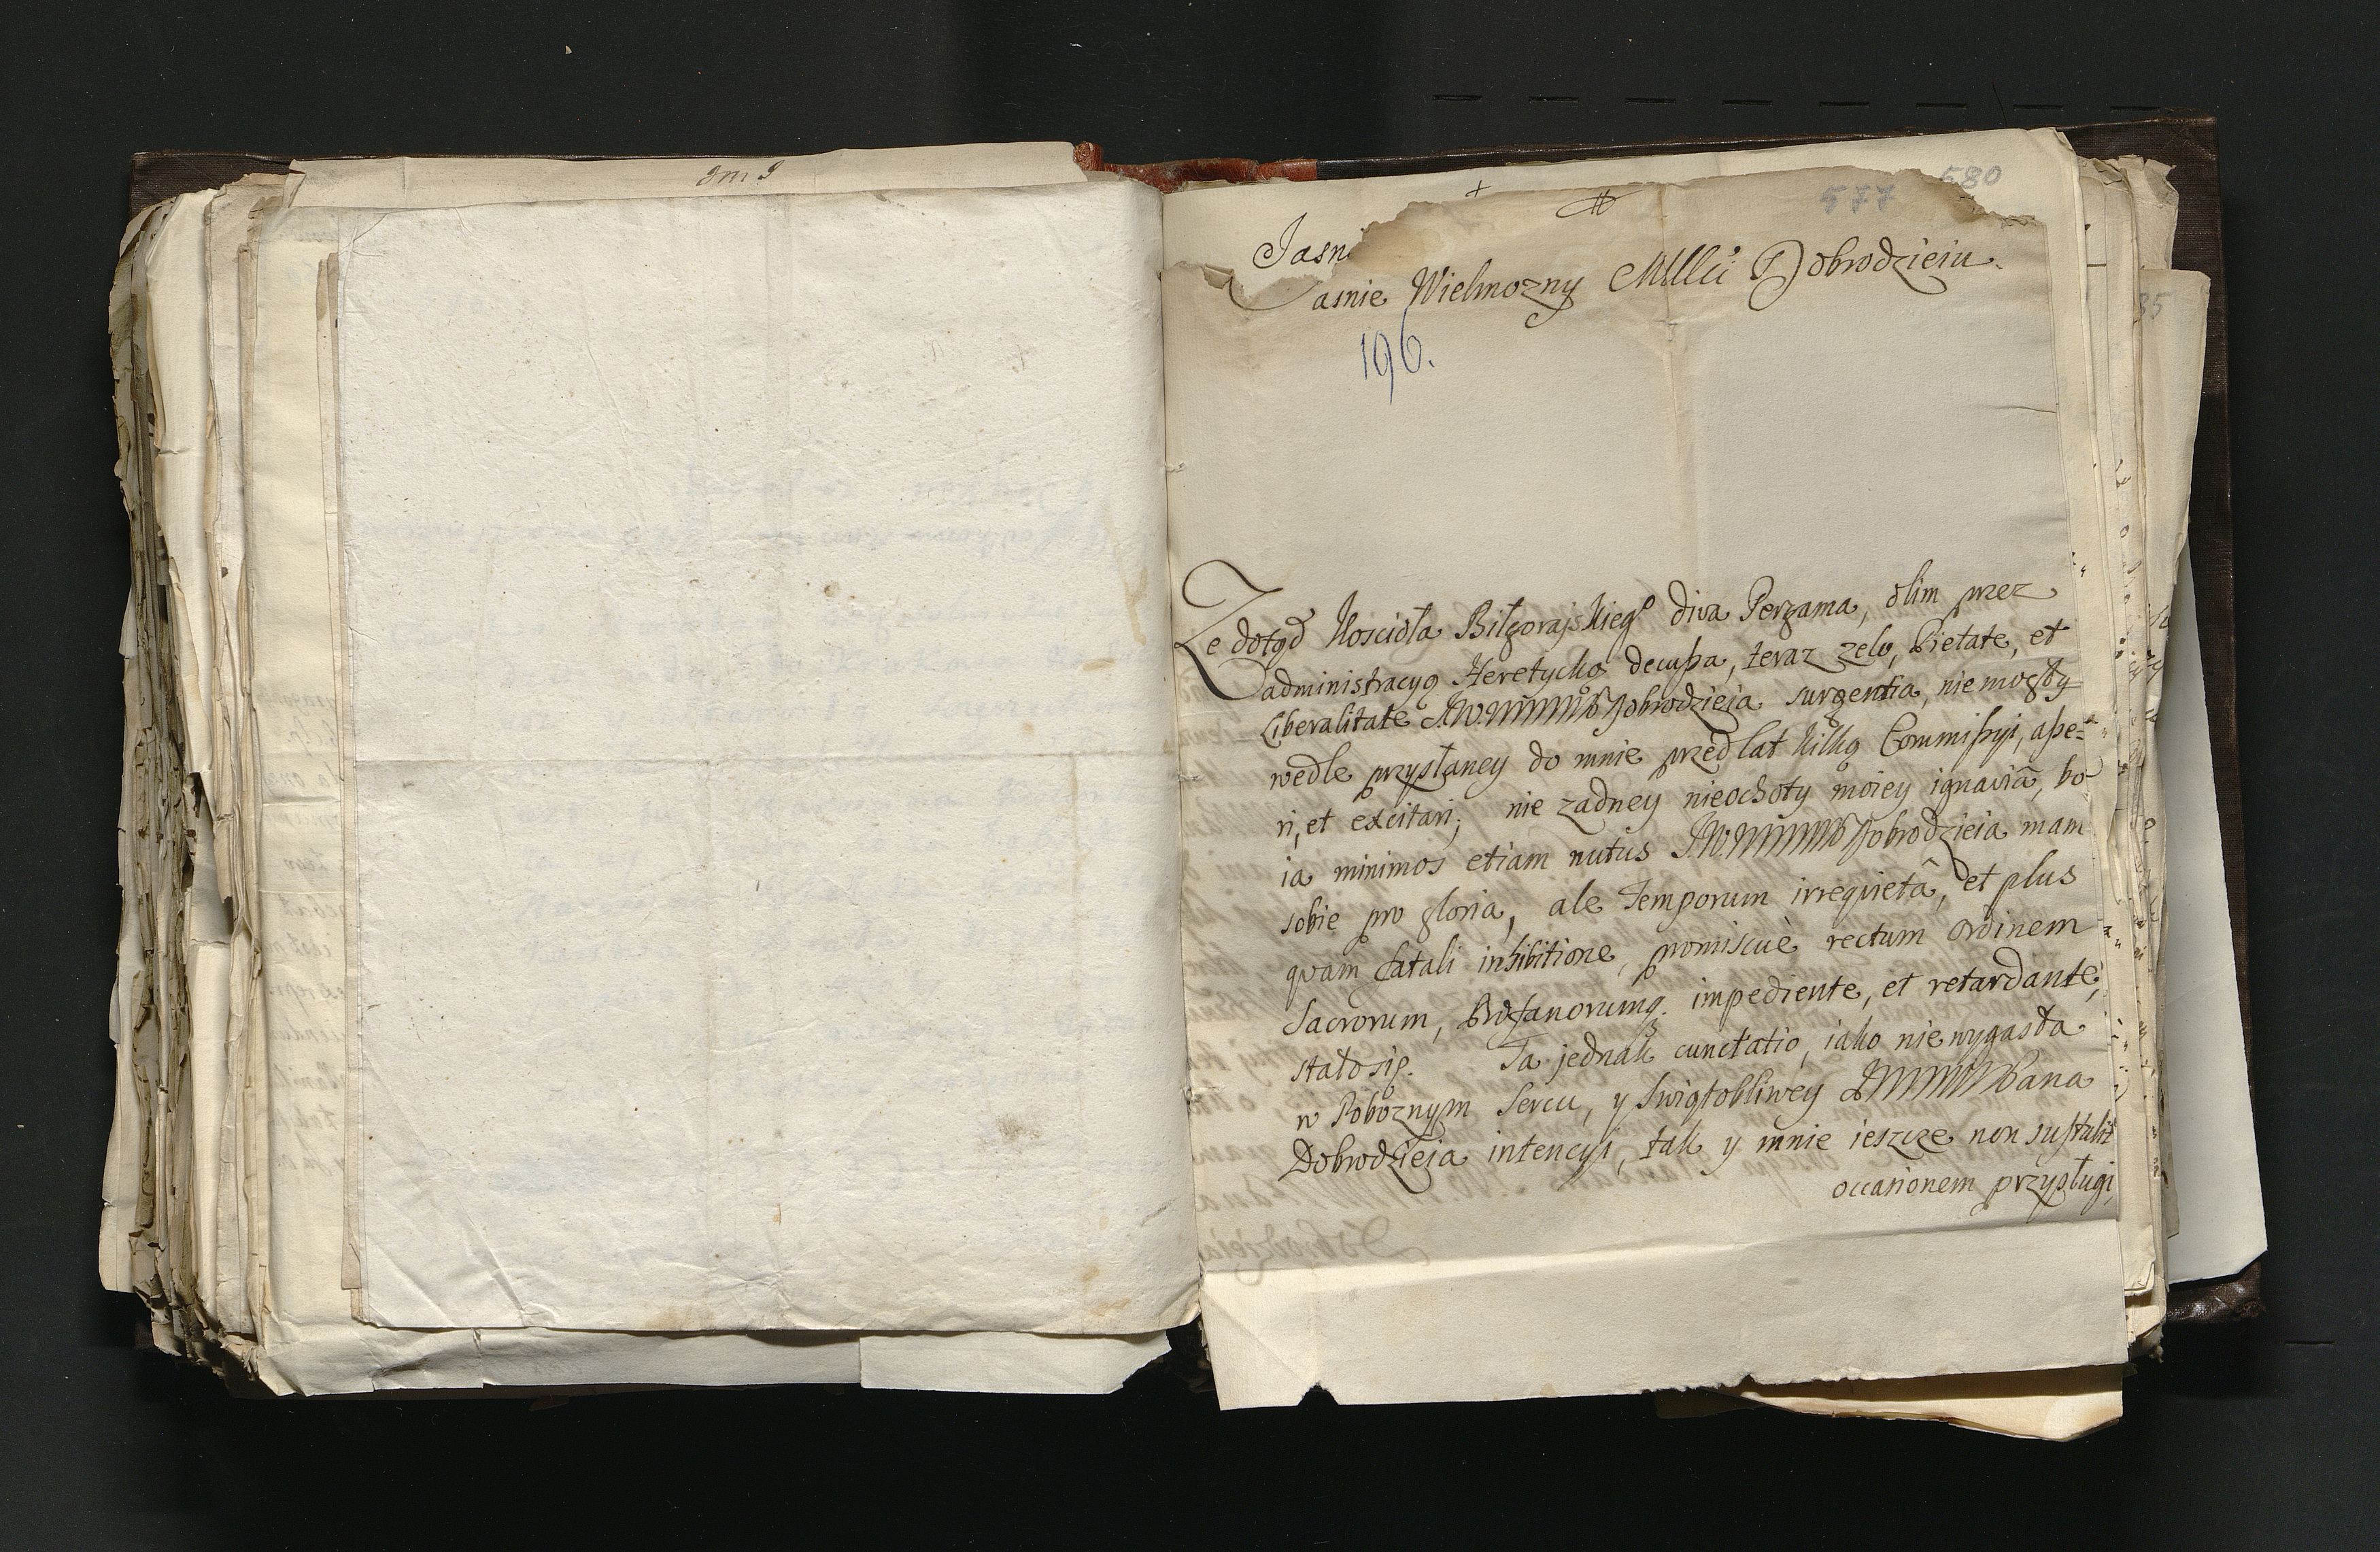 580
577
Jasn
asnie Wielmozny Dobrodzieiu
196.
Ze dotąd Koscioła Biłgorajskiego diva Pergama, olim przez
administracyą Heretycką decussa, teraz zelo, Pietate, et
Liberalitate Dobrodzieia surgentia, niemogły
wedle przysłaney do mnie przed lat kilką Commissyi, asse=
ri, et excitari; nie zadney nieochoty moiey ignaviâ, bo
ia minimos etiam nutus Dobrodzieia mam
sobie pro gloria, ale temporum irrequietâ, et plus
quam fatali inhibitione, promiscuè rectum ordinem
Sacrorum, Profanorumq. impediente, et retardante,
stało się. Ta jednak cunctatio, iako nie wygasła
w Poboznym Sercu, y Swiątobliwey Pana
Dobrodzieia intencyi, tak y mnie ieszcze non sustulit
occasionem przysługi,